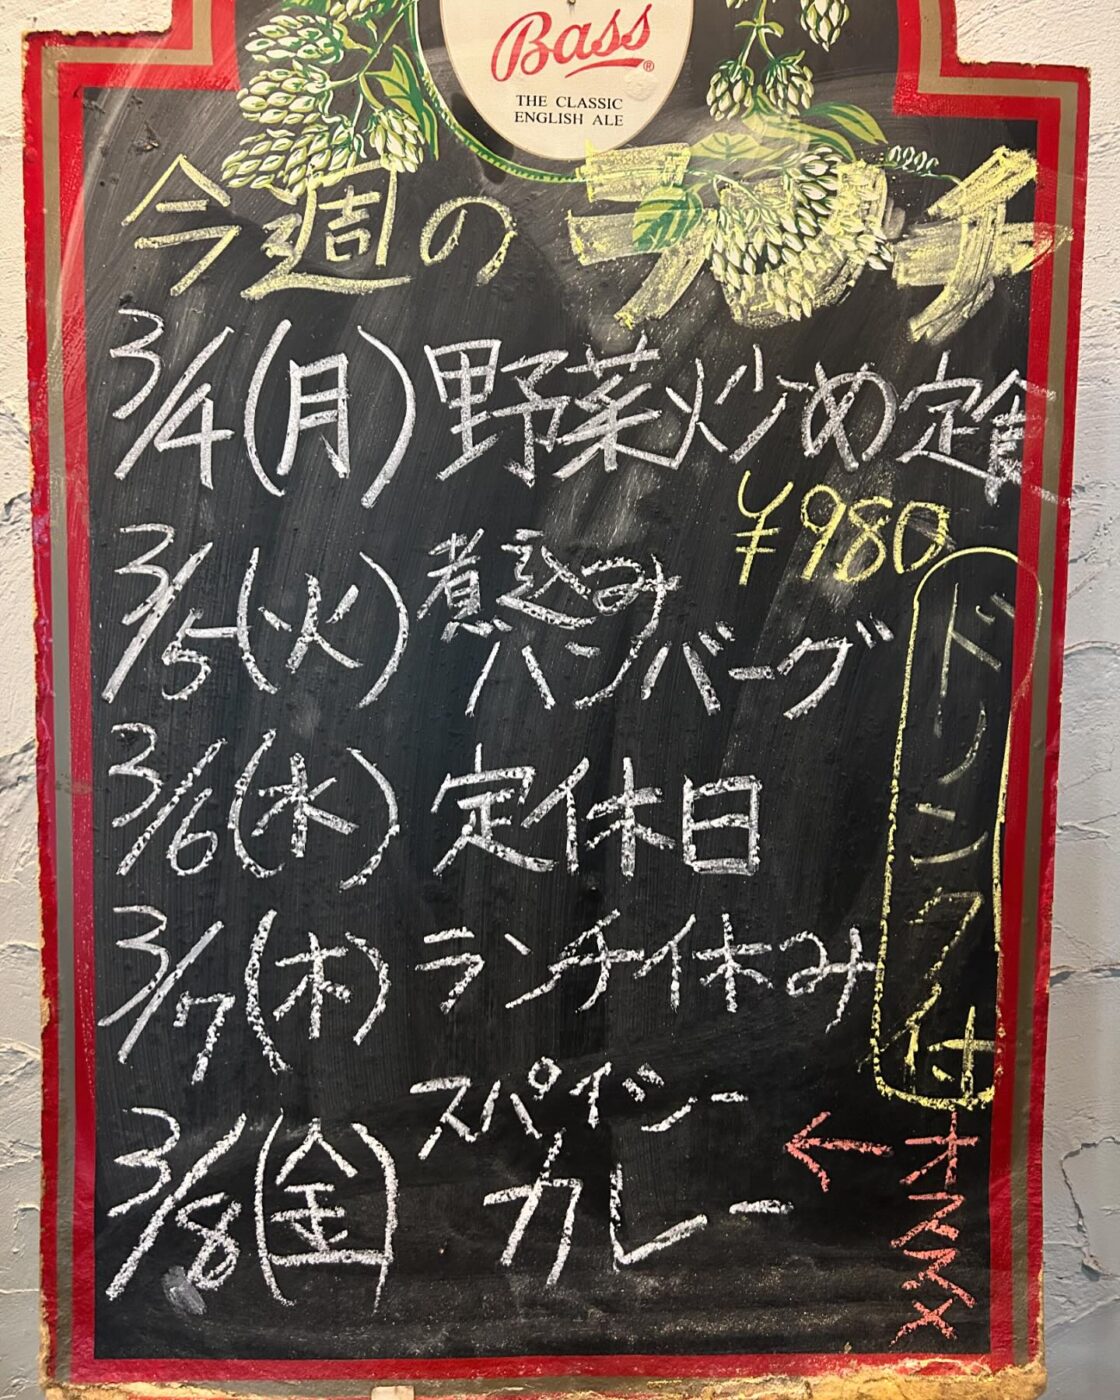 Bass®
THE CLASSIC
ENGLISH ALE
今週のランチ
3/4(月)野菜炒め定食
¥980
3/5(火)煮込み
ハンバーグ
ドリンク付
3/6(水)定休日
3/7(木)ランチ休み
3/8(金)スパイシー
カレー
←オススメ